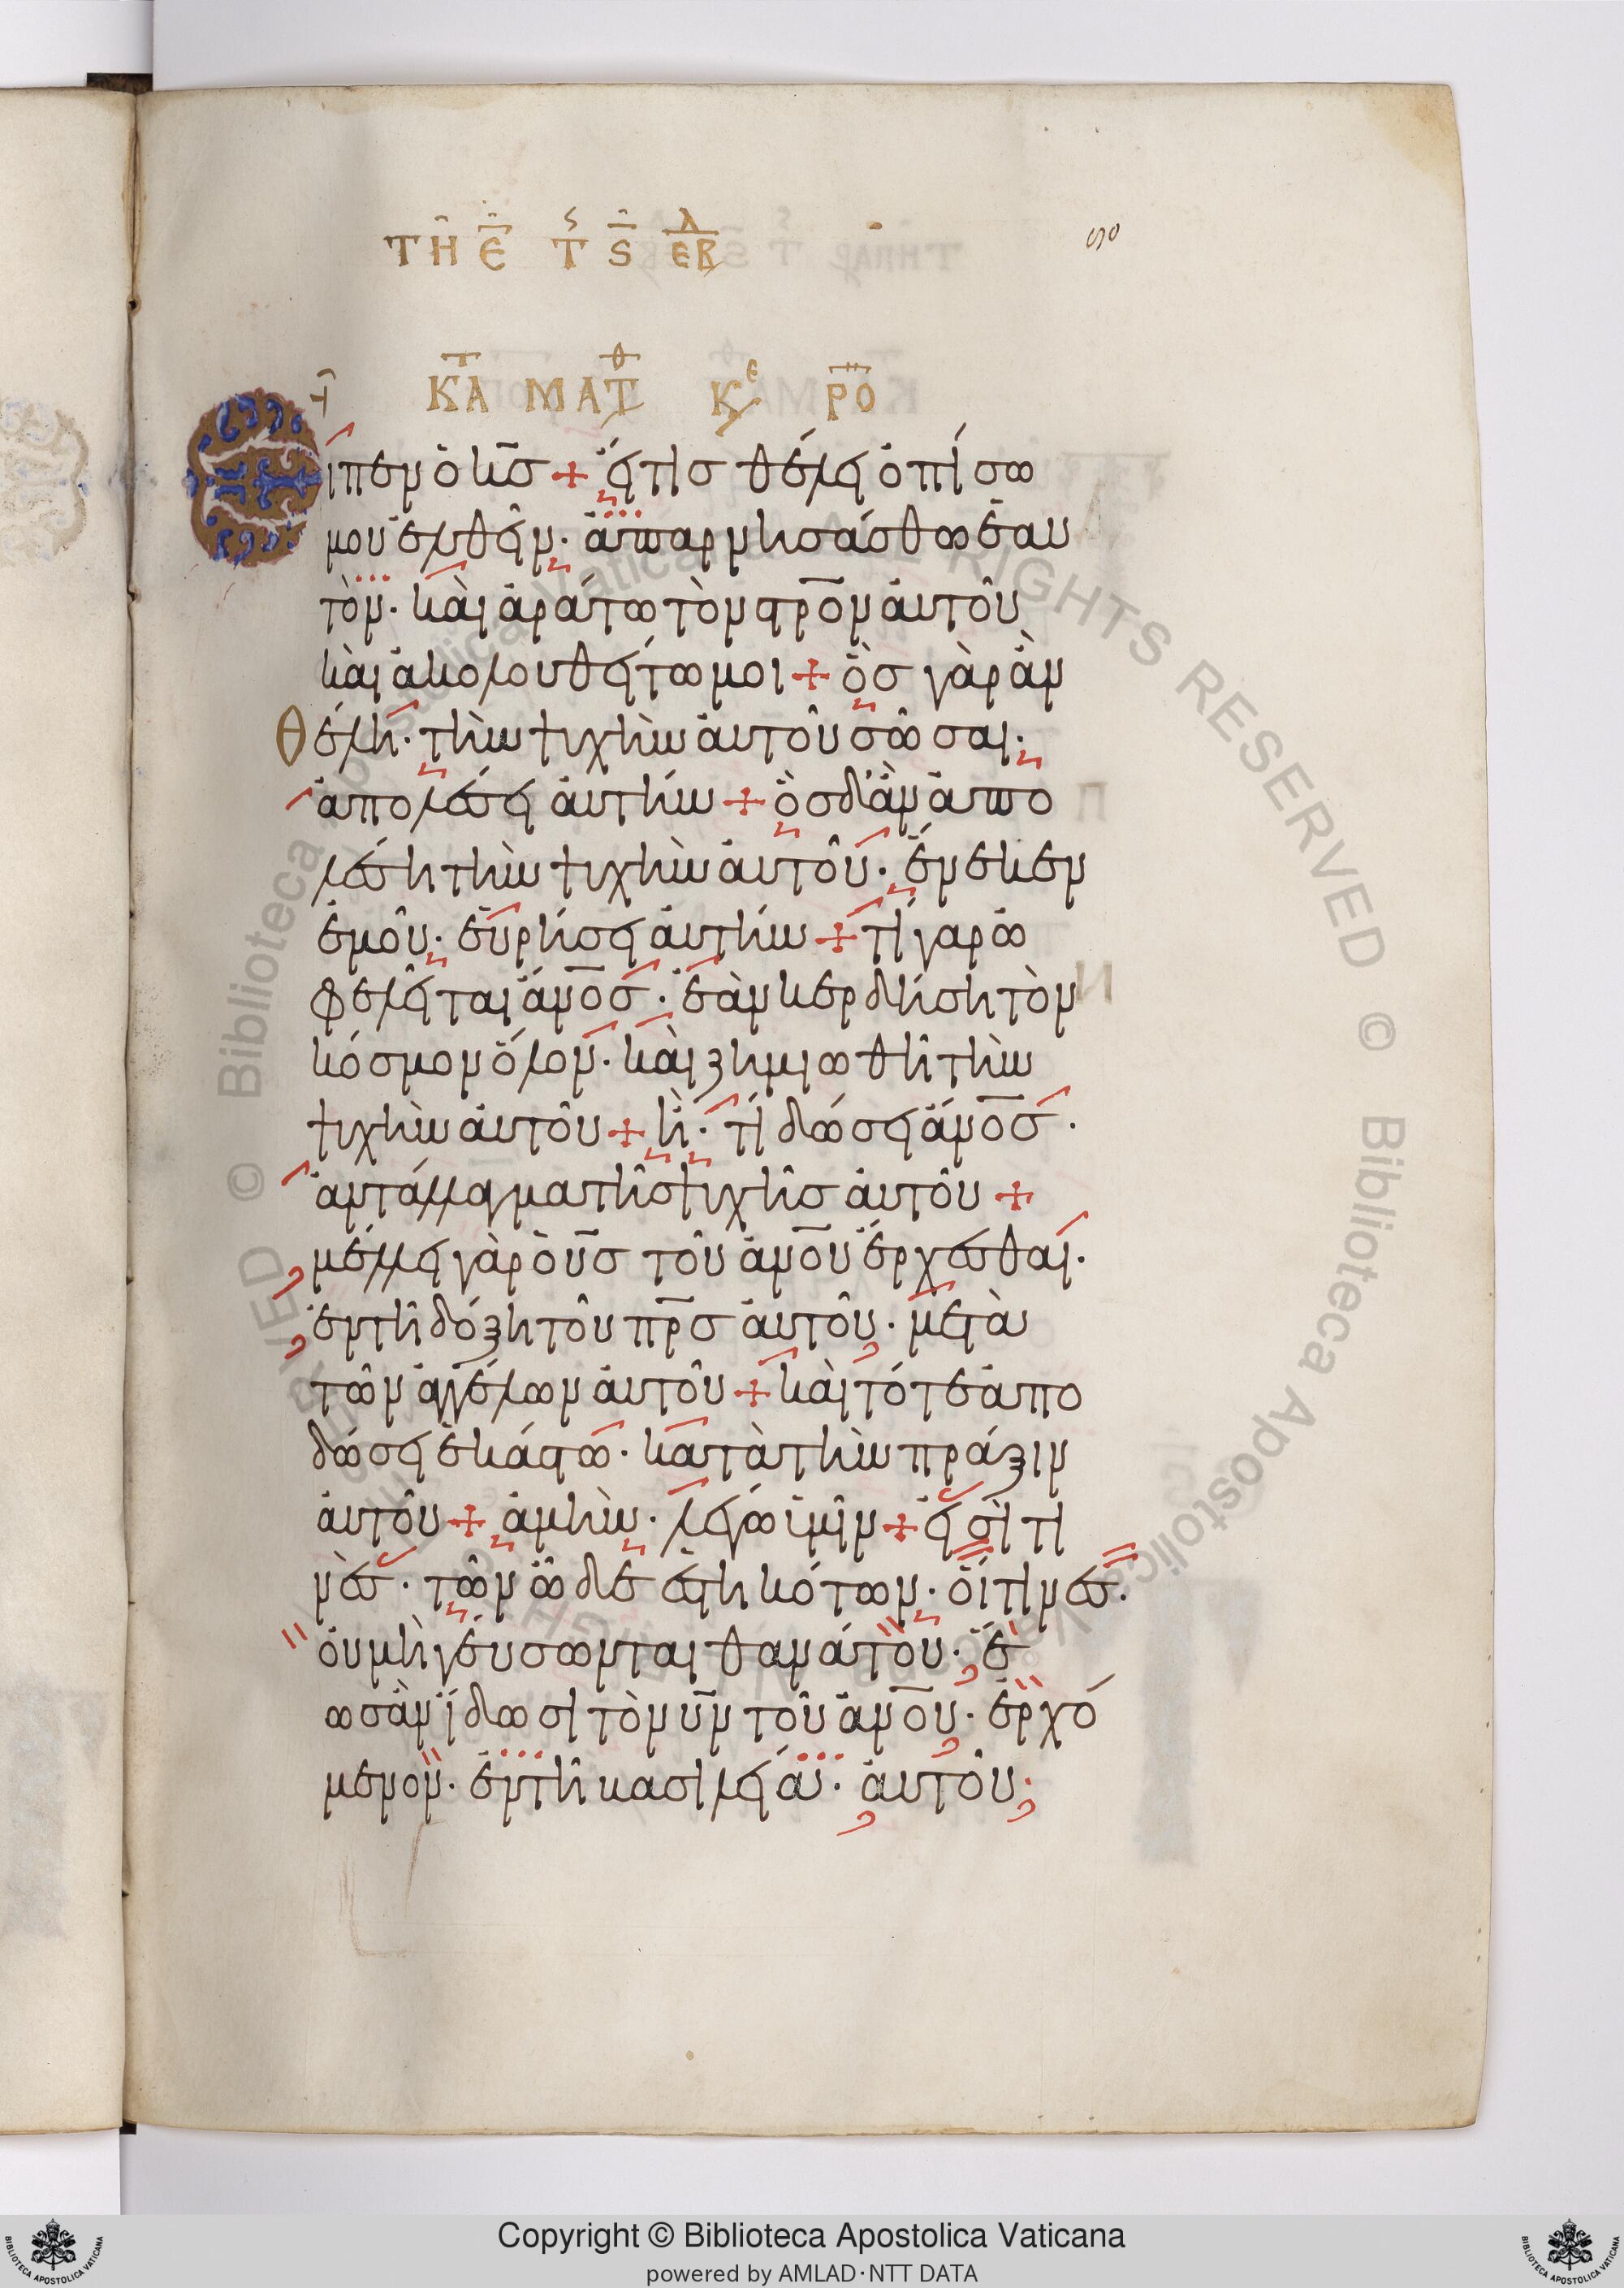 ΤΗ Ε̄ Τς̄ ς̄ ΕΒΔ
90
ΚΑΤ̄ ΜΑΤΘ̄ Κεφ ΡΟ̄
Εἶπεν ὁ κ̅ς̅ + εἴ τις θέλει ὀπίσω
μου ἐλθεῖν· ἀπαρνησάσθω ἑαυ
τόν· καὶ ἀράτω τὸν στ̅ρον αὐτοῦ
καὶ ἀκολουθείτω μοι + ὃς γὰρ ἂν
θέλη· τὴν ψυχὴν αὐτοῦ σῶσαι·
ἀπολέσει αὐτήν + ὃς δ' ἂν ἀπο
λέση τὴν ψυχὴν αὐτοῦ· ἕνεκεν
ἐμοῦ· εὑρήσει αὐτήν + τί γαρ ὠ
φελεῖται ἄν̅ο̅ς· ἐὰν κερδήση τὸν
κόσμον ὅλον· καὶ ζημιωθῆ τὴν
ψυχὴν αὐτοῦ + ἢ· τί δώσει ἄν̅ο̅ς·
ἀντάλλαγμα τῆς ψυχῆς αὐτοῦ +
μέλλει γὰρ ὁ υ̅ς τοῦ ἀν̅ο̅υ ἔρχεσθαι·
ἐν τῆ δόξη τοῦ π̅ρ̅ς αὐτοῦ· μετὰ
τῶν ἀγγέλων αὐτοῦ + καὶ τότε ἀπο
δώσει ἑκάστω· κατὰ τὴν πράξιν
αὐτοῦ + ἀμὴν· λέγω ὑμῖν + εἰσί τι
νὲς· τῶν ὧδε ἑστηκότων· οἵτινες·
οὐ μὴ γεύσωνται θανάτου· ἕ
ως ἂν ἴδωσι τὸν υ̅ν τοῦ ἀν̅ο̅υ· ἐρχό
μενον· ἐν τῆ βασιλεία· αὐτοῦ·
© Biblioteca Apostolica Vaticana
ALL RIGHTS RESERVED
© Biblioteca Apostolica
Copyright © Biblioteca Apostolica Vaticana
powered by AMLAD·NTT DATA
BIBLIOTECA APOSTOLICA VATICANA
BIBLIOTECA APOSTOLICA VATICANA